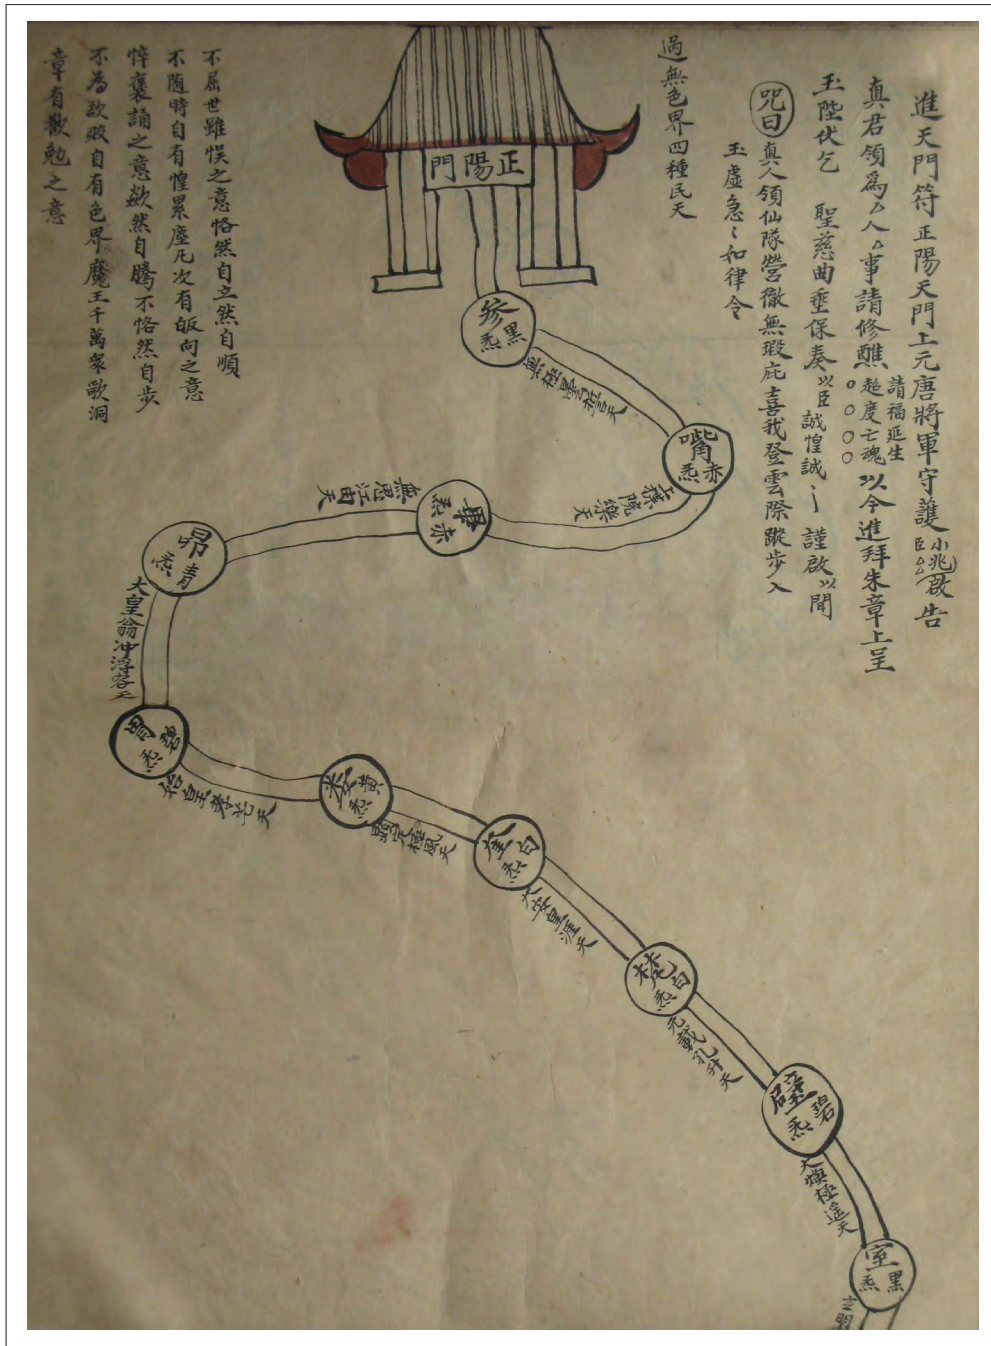 進天門符 正陽天門上元唐將軍守護 小兆臣厶厶 啟告
真君領爲厶人厶事請修醮 請福延生 超度亡魂 〇〇〇〇 以今進拜朱章上呈
玉陛伏乞 聖慈曲垂保奏 以臣 誠惶誠〻 謹啟 以聞
咒曰 真人領仙隊營徹無瑕庇喜我登雲際蹤步入
玉虛急〻如律令
過無色界四種民天
正陽門
不屈世雖悮之意恪然自立然自順
不随時自有惶累塵凡次有皈向之意
悴褒誦之意欻然自騰不恪然自步
不為欲敗自有色界魔王千萬衆歌洞
章有歡勉之意
參 黑炁
嘴 赤炁
上揲阮樂天
畢 赤炁
無思江由天
昴 青炁
太皇翁冲浮容天
胃 碧炁
始皇孝芒天
婁 黄炁
顯定極風天
奎 白炁
太安皇涯天
白炁
元載孔升天
壁 碧炁
太煥極遥天
室 黑炁
玄明